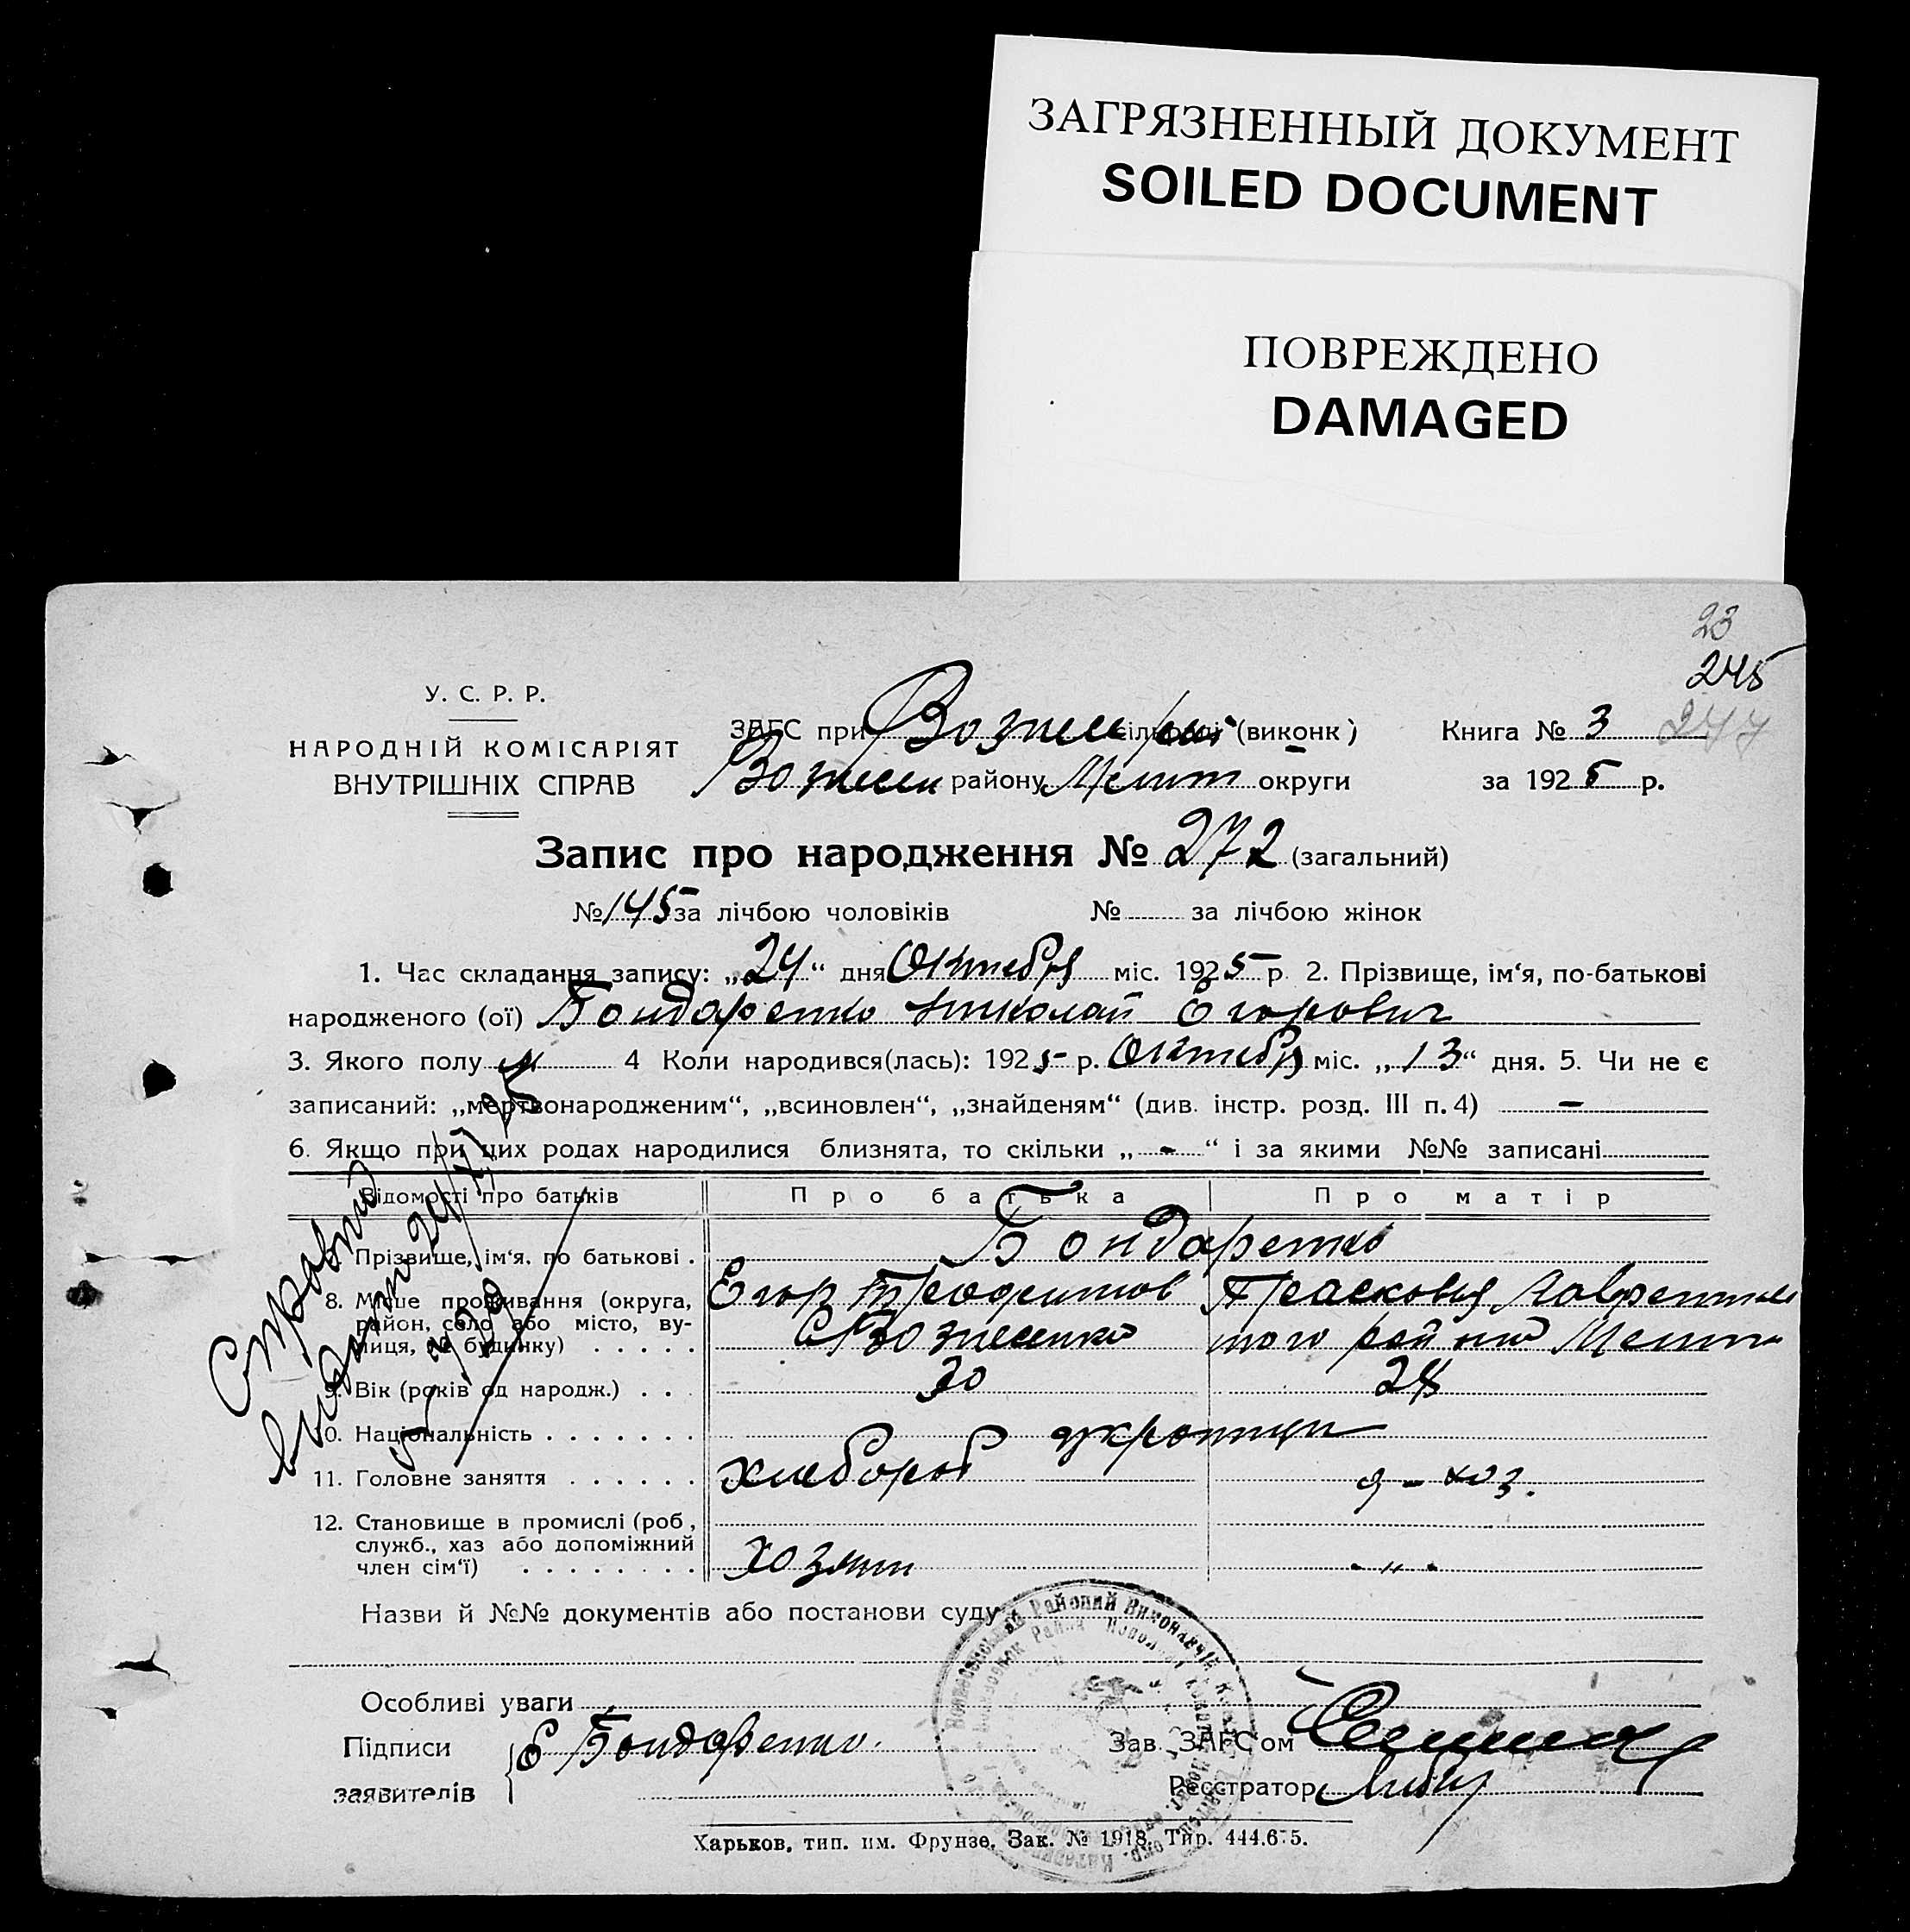 ЗАГРЯЗНЕННЫЙ ДОКУМЕНТ
SOILED DOCUMENT
ПОВРЕЖДЕНО
DAMAGED
23
245
277
У. С. Р. Р.
НАРОДНІЙ КОМІСАРІЯТ
ВНУТРІШНІХ СПРАВ
ЗАГС при Вознес рик сільраді (виконк) Книга № 3
Вознесен району Мелит округи за 1925 р.
Запис про народження № 272 (загальний)
№ 145 за лічбою чоловіків № за лічбою жінок
1. Час складання запису: „24“ дня Октября міс. 1925 р. 2. Прізвище, ім‘я, по-батькові
народженого (ої) Бондаренко Николай Егорович
3. Якого полу м 4 Коли народився(лась): 1925 р. Октября міс. „13“ дня. 5. Чи не є
записаний: „мертвонародженим“, „всиновлен“, „знайденям“ (див. інстр. розд. III п. 4) —
6. Якщо при цих родах народилися близнята, то скільки „-“ і за якими №№ записані
Відомості про батьків Про батька Про матір
Прізвище, ім‘я. по батькові . Бондаренко
Егор Трофимов Прасковья Лаврентьев
8. Місце проживання (округа, район, село або місто, вулиця, № будинку) . . . . . С Вознесенка того района Мелит
9. Вік (років од народж.) . . . 30 28
10. Національність . . . . . . . украинцы
11. Головне заняття . . . . . . хлебороб д-хоз.
12. Становище в промислі (роб,
служб., хаз або допоміжний
член сім‘ї) . . . . . . . . хозяин - „ -
Справка
выдана 24/X 25
Назви й №№ документів або постанови суду
Особливі уваги
Підписи заявителів Е Бондаренко. Зав. ЗАГС‘ом
Реєстратор
Харьков, тип. им. Фрунзе. Зак. № 1918. Тир. 444.675.